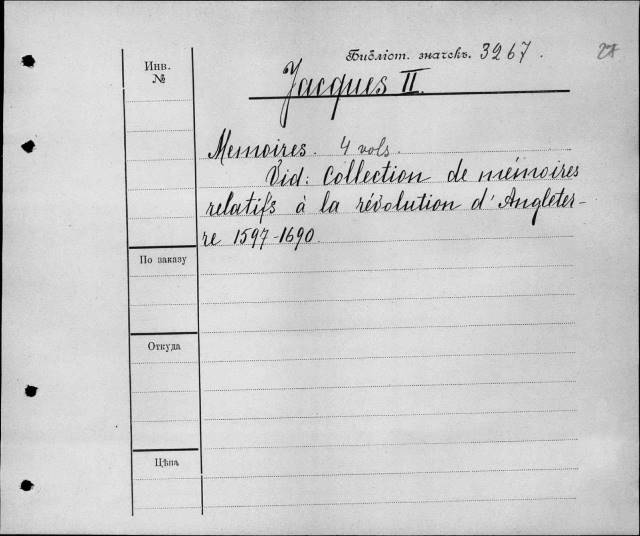 Библіот. значекъ. 3267. 27
Инв.
№
Jacques II.
Memoires. 4 vols.
Vid: Collection de mémoires
relatifs à la révolution d'Angleter-
re 1597-1690.
По заказу
Откуда
Цѣна